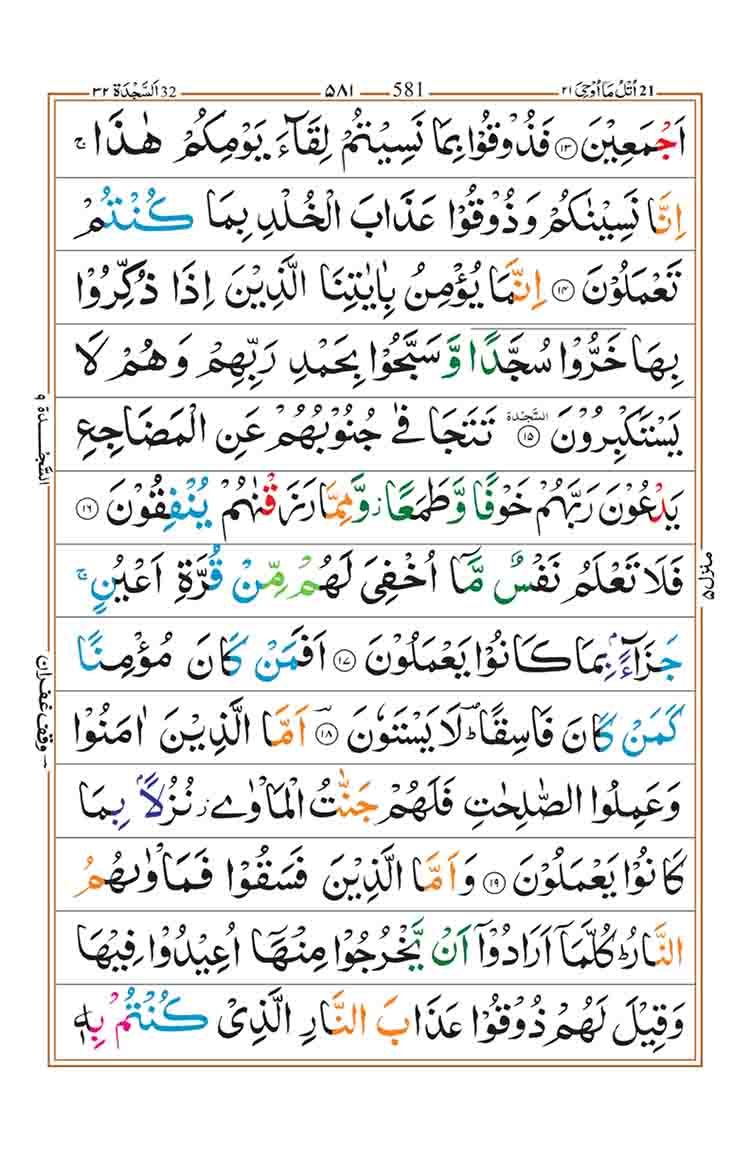 اَلسَّجْدَة ٣٢ 32
٥٨١ 581
اُتْلُ مَآ اُوْحِىَ ٢١ 21
اَجْمَعِيْنَ ١٣ فَذُوْقُوْا بِمَا نَسِيْتُمْ لِقَآءَ يَوْمِكُمْ هٰذَا ۚ
اِنَّا نَسِيْنٰكُمْ وَذُوْقُوْا عَذَابَ الْخُلْدِ بِمَا كُنْتُمْ
تَعْمَلُوْنَ ١٤ اِنَّمَا يُؤْمِنُ بِاٰيٰتِنَا الَّذِيْنَ اِذَا ذُكِّرُوْا
بِهَا خَرُّوْا سُجَّدًا وَّ سَبَّحُوْا بِحَمْدِ رَبِّهِمْ وَهُمْ لَا
يَسْتَكْبِرُوْنَ ١٥ السَّجْدَة تَتَجَافٰى جُنُوْبُهُمْ عَنِ الْمَضَاجِعِ
يَدْعُوْنَ رَبَّهُمْ خَوْفًا وَّطَمَعًا ز وَّمِمَّا رَزَقْنٰهُمْ يُنْفِقُوْنَ ١٦
فَلَا تَعْلَمُ نَفْسٌ مَّآ اُخْفِىَ لَهُمْ مِّنْ قُرَّةِ اَعْيُنٍ ۚ
جَزَآءًۢ بِمَا كَانُوْا يَعْمَلُوْنَ ١٧ اَفَمَنْ كَانَ مُؤْمِنًا
كَمَنْ كَانَ فَاسِقًا ؕ لَا يَسْتَوٗنَ ١٨ اَمَّا الَّذِيْنَ اٰمَنُوْا
وَعَمِلُوا الصّٰلِحٰتِ فَلَهُمْ جَنّٰتُ الْمَاْوٰى ز نُزُلًاۢ بِمَا
كَانُوْا يَعْمَلُوْنَ ١٩ وَاَمَّا الَّذِيْنَ فَسَقُوْا فَمَاْوٰىهُمُ
النَّارُ ؕ كُلَّمَآ اَرَادُوْٓا اَنْ يَّخْرُجُوْا مِنْهَآ اُعِيْدُوْا فِيْهَا
وَقِيْلَ لَهُمْ ذُوْقُوْا عَذَابَ النَّارِ الَّذِىْ كُنْتُمْ بِهٖ
السَّجْدَة ٩
وقف غفران
منزل ٥